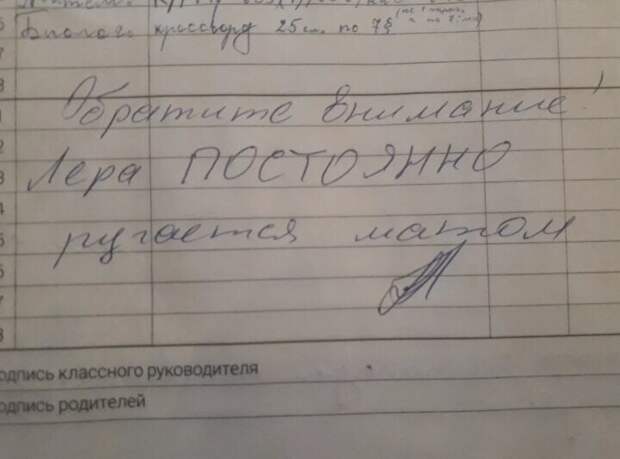 6 Биолог. кроссворд 25 сл. по 7§
7
8
1 Обратите внимание!
2
3 Лера ПОСТОЯННО
4
5 ругается матом
6
7
8
одпись классного руководителя
одпись родителей